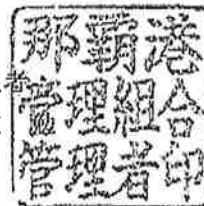 那覇港
管理組合
管理者印
者